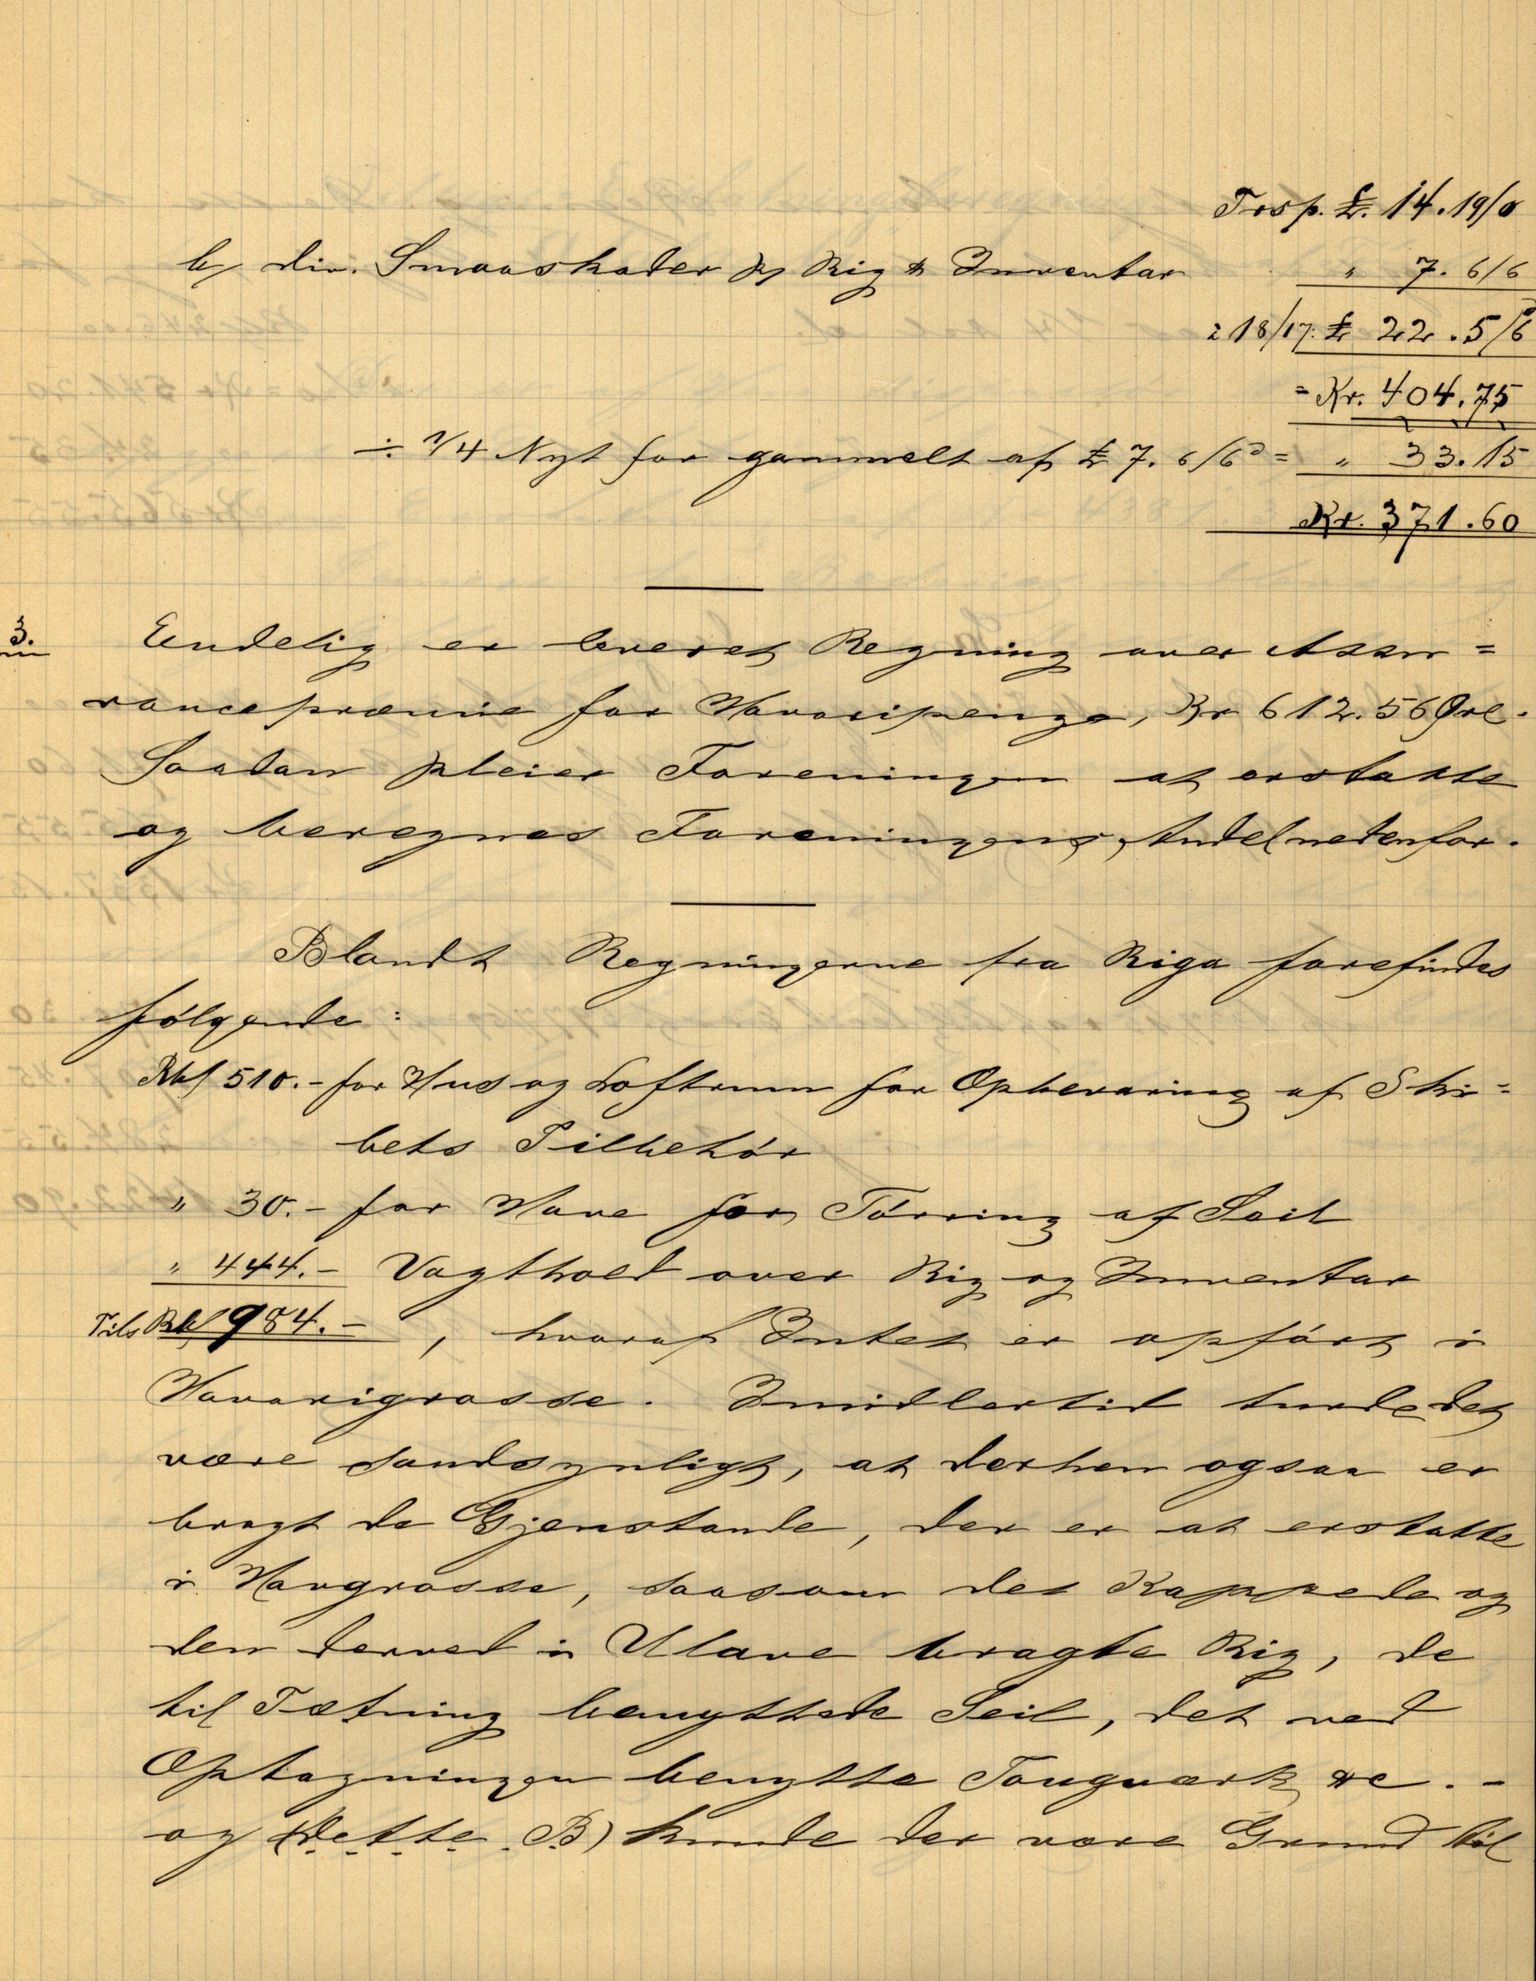 Trsp. £. 14.19/0
b/ div. Smaaskader på Rig & Inventar " 7. 6/6
à 18/17: £ 22.5/6
= Kr. 404.75
÷ 1/4 Nyt for gammelt af £ 7. 6/6ᵈ = " 33.15
Kr. 371.60
3. Endelig er leveret Regning over Assu=
rancepræmie for Havaripenge, Kr 612.56 Øre.
Saadan pleier Foreningen at erstatte
og beregnes Foreningens Andel nedenfor.
Blandt Regningerne fra Riga forefindes
følgende:
Rbl 510.- for Hus og Loftrum for Opbevaring af Ski=
bets Tilbehør
" 30.- for Have for Tørring af Seil
" 444.- Vagthold over Rig og Inventar
Tils Rbl 984.- , hvoraf Intet er opført i
Havarigrosse. Imidlertid turde det
være sandsynligt, at derhen ogsaa er
bragt de Gjenstande, der er at erstatte
i Havgrosse, saasom det Kappede og
den derved i Ulave bragte Rig, de
til Tætning benyttede Seil, det ved
Optagningen benytte Tougværk &c. -
og (Dette B) kunde der være Grund til